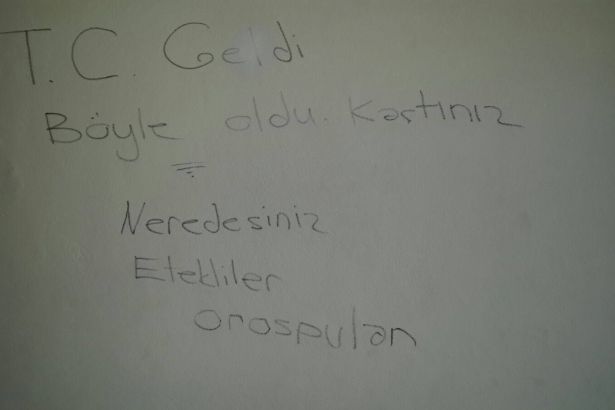 T.C. Geldi
Böyle oldu. Kaçtınız
Neredesiniz
Etekliler
orospuları